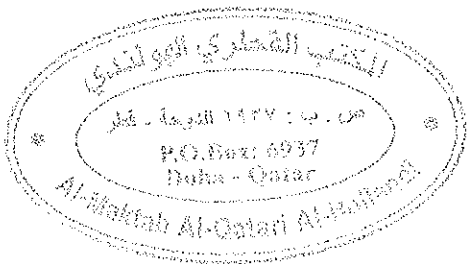 المكتب القطري الهولندي
ص . ب : ٦٩٣٧ الدوحة - قطر
P.O.Box: 6937
Doha - Qatar
Al-Maktab Al-Qatari Al-Hollandi